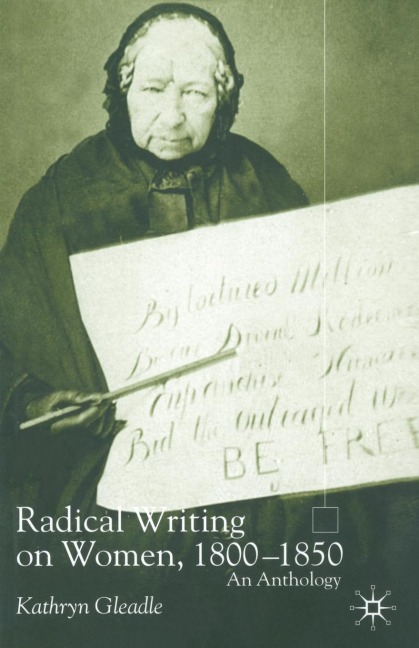 By tortured Million
By the Divine Redeeme
Enfranchise Humani
Bid the outraged wo
BE FREE
Radical Writing
on Women, 1800–1850
An Anthology
Kathryn Gleadle